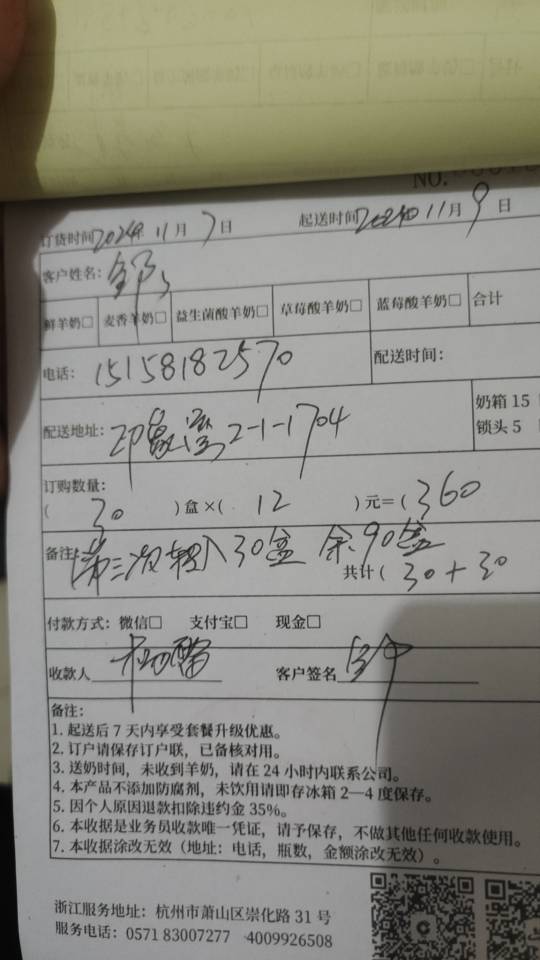 NO.
订货时间2024年11月7日 起送时间2024年11月9日
客户姓名：
鲜羊奶□ 麦香羊奶□ 益生菌酸羊奶□ 草莓酸羊奶□ 蓝莓酸羊奶□ 合计
电话：15158182570 配送时间：
配送地址：印象湾2-1-1704
奶箱 15
锁头 5
订购数量：
(30)盒×(12)元=(360
备注：第三次转入30盒 余90盒
共计(30+30
付款方式：微信□ 支付宝□ 现金□
收款人 客户签名
备注：
1. 起送后 7 天内享受套餐升级优惠。
2. 订户请保存订户联，已备核对用。
3. 送奶时间，未收到羊奶，请在 24 小时内联系公司。
4. 本产品不添加防腐剂，未饮用请即存冰箱 2—4 度保存。
5. 因个人原因退款扣除违约金 35%。
6. 本收据是业务员收款唯一凭证，请予保存，不做其他任何收款使用。
7. 本收据涂改无效（地址：电话，瓶数，金额涂改无效）。
浙江服务地址：杭州市萧山区崇化路 31 号
服务电话：0571 83007277 4009926508